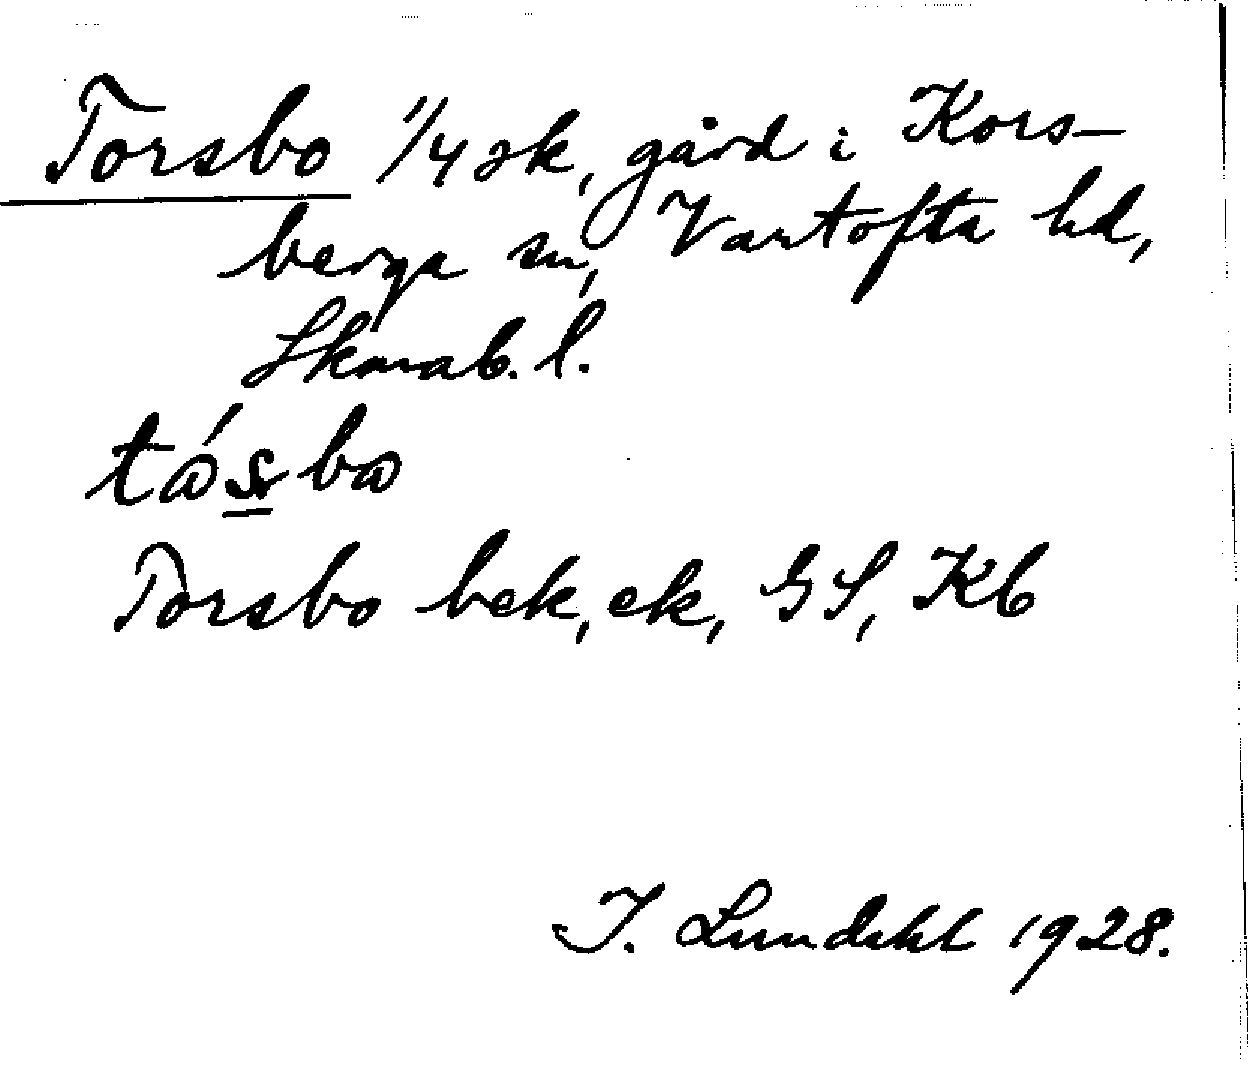 Torsbo 1/4 sk, gård i Kors-
berga sn, Vartofta hd,
Skarab. l.
Torsbo bek, ek, GS, Kb
I. Lundahl 1928.